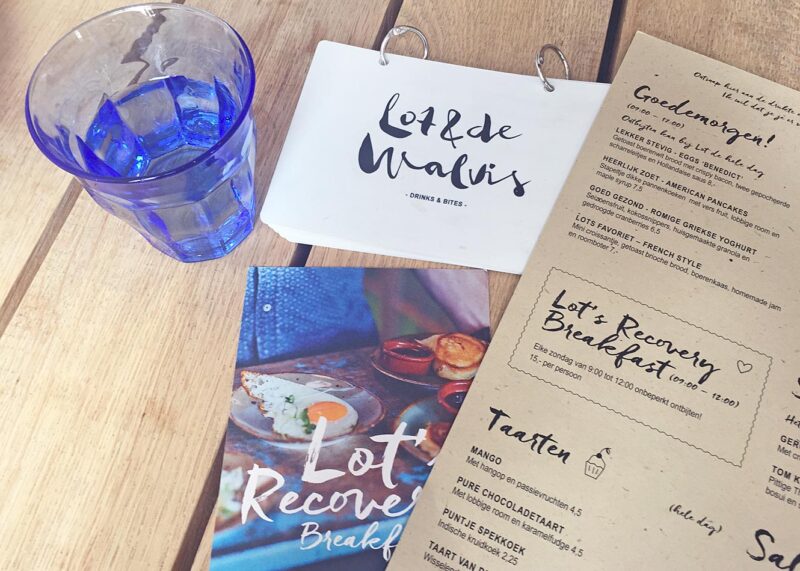 Lot & de
Walvis
- DRINKS & BITES -
Lot's
Recovery
Ontsnap hier aan de drukte
Goedemorgen!
(09:00 - 17:00)
Ontbijten kan bij Lot de hele dag
LEKKER STEVIG - EGGS 'BENEDICT'
Getoast boerenwit brood met crispy bacon, twee gepocheerde
scharreleitjes en Hollandaise saus 8,-
HEERLIJK ZOET - AMERICAN PANCAKES
Stapeltje dikke pannenkoeken met vers fruit, lobbige room en
maple syrup 7,5
GOED GEZOND - ROMIGE GRIEKSE YOGHURT
Seizoensfruit, kokossnippers, huisgemaakte granola en
gedroogde cranberries 6,5
LOTS FAVORIET – FRENCH STYLE
Mini croissantje, getoast brioche brood, boerenkaas, homemade jam
en roomboter 7,-
Lot's Recovery
Breakfast (09:00 – 12:00)
Elke zondag van 9:00 tot 12:00 onbeperkt ontbijten!
15,- per persoon
Taarten
(hele dag)
MANGO
Met hangop en passievruchten 4,5
PURE CHOCOLADETAART
Met lobbige room en karamelfudge 4,5
PUNTJE SPEKKOEK
Indische kruidkoek 2,25
TAART VAN
TOM K
Pittige
bosui en